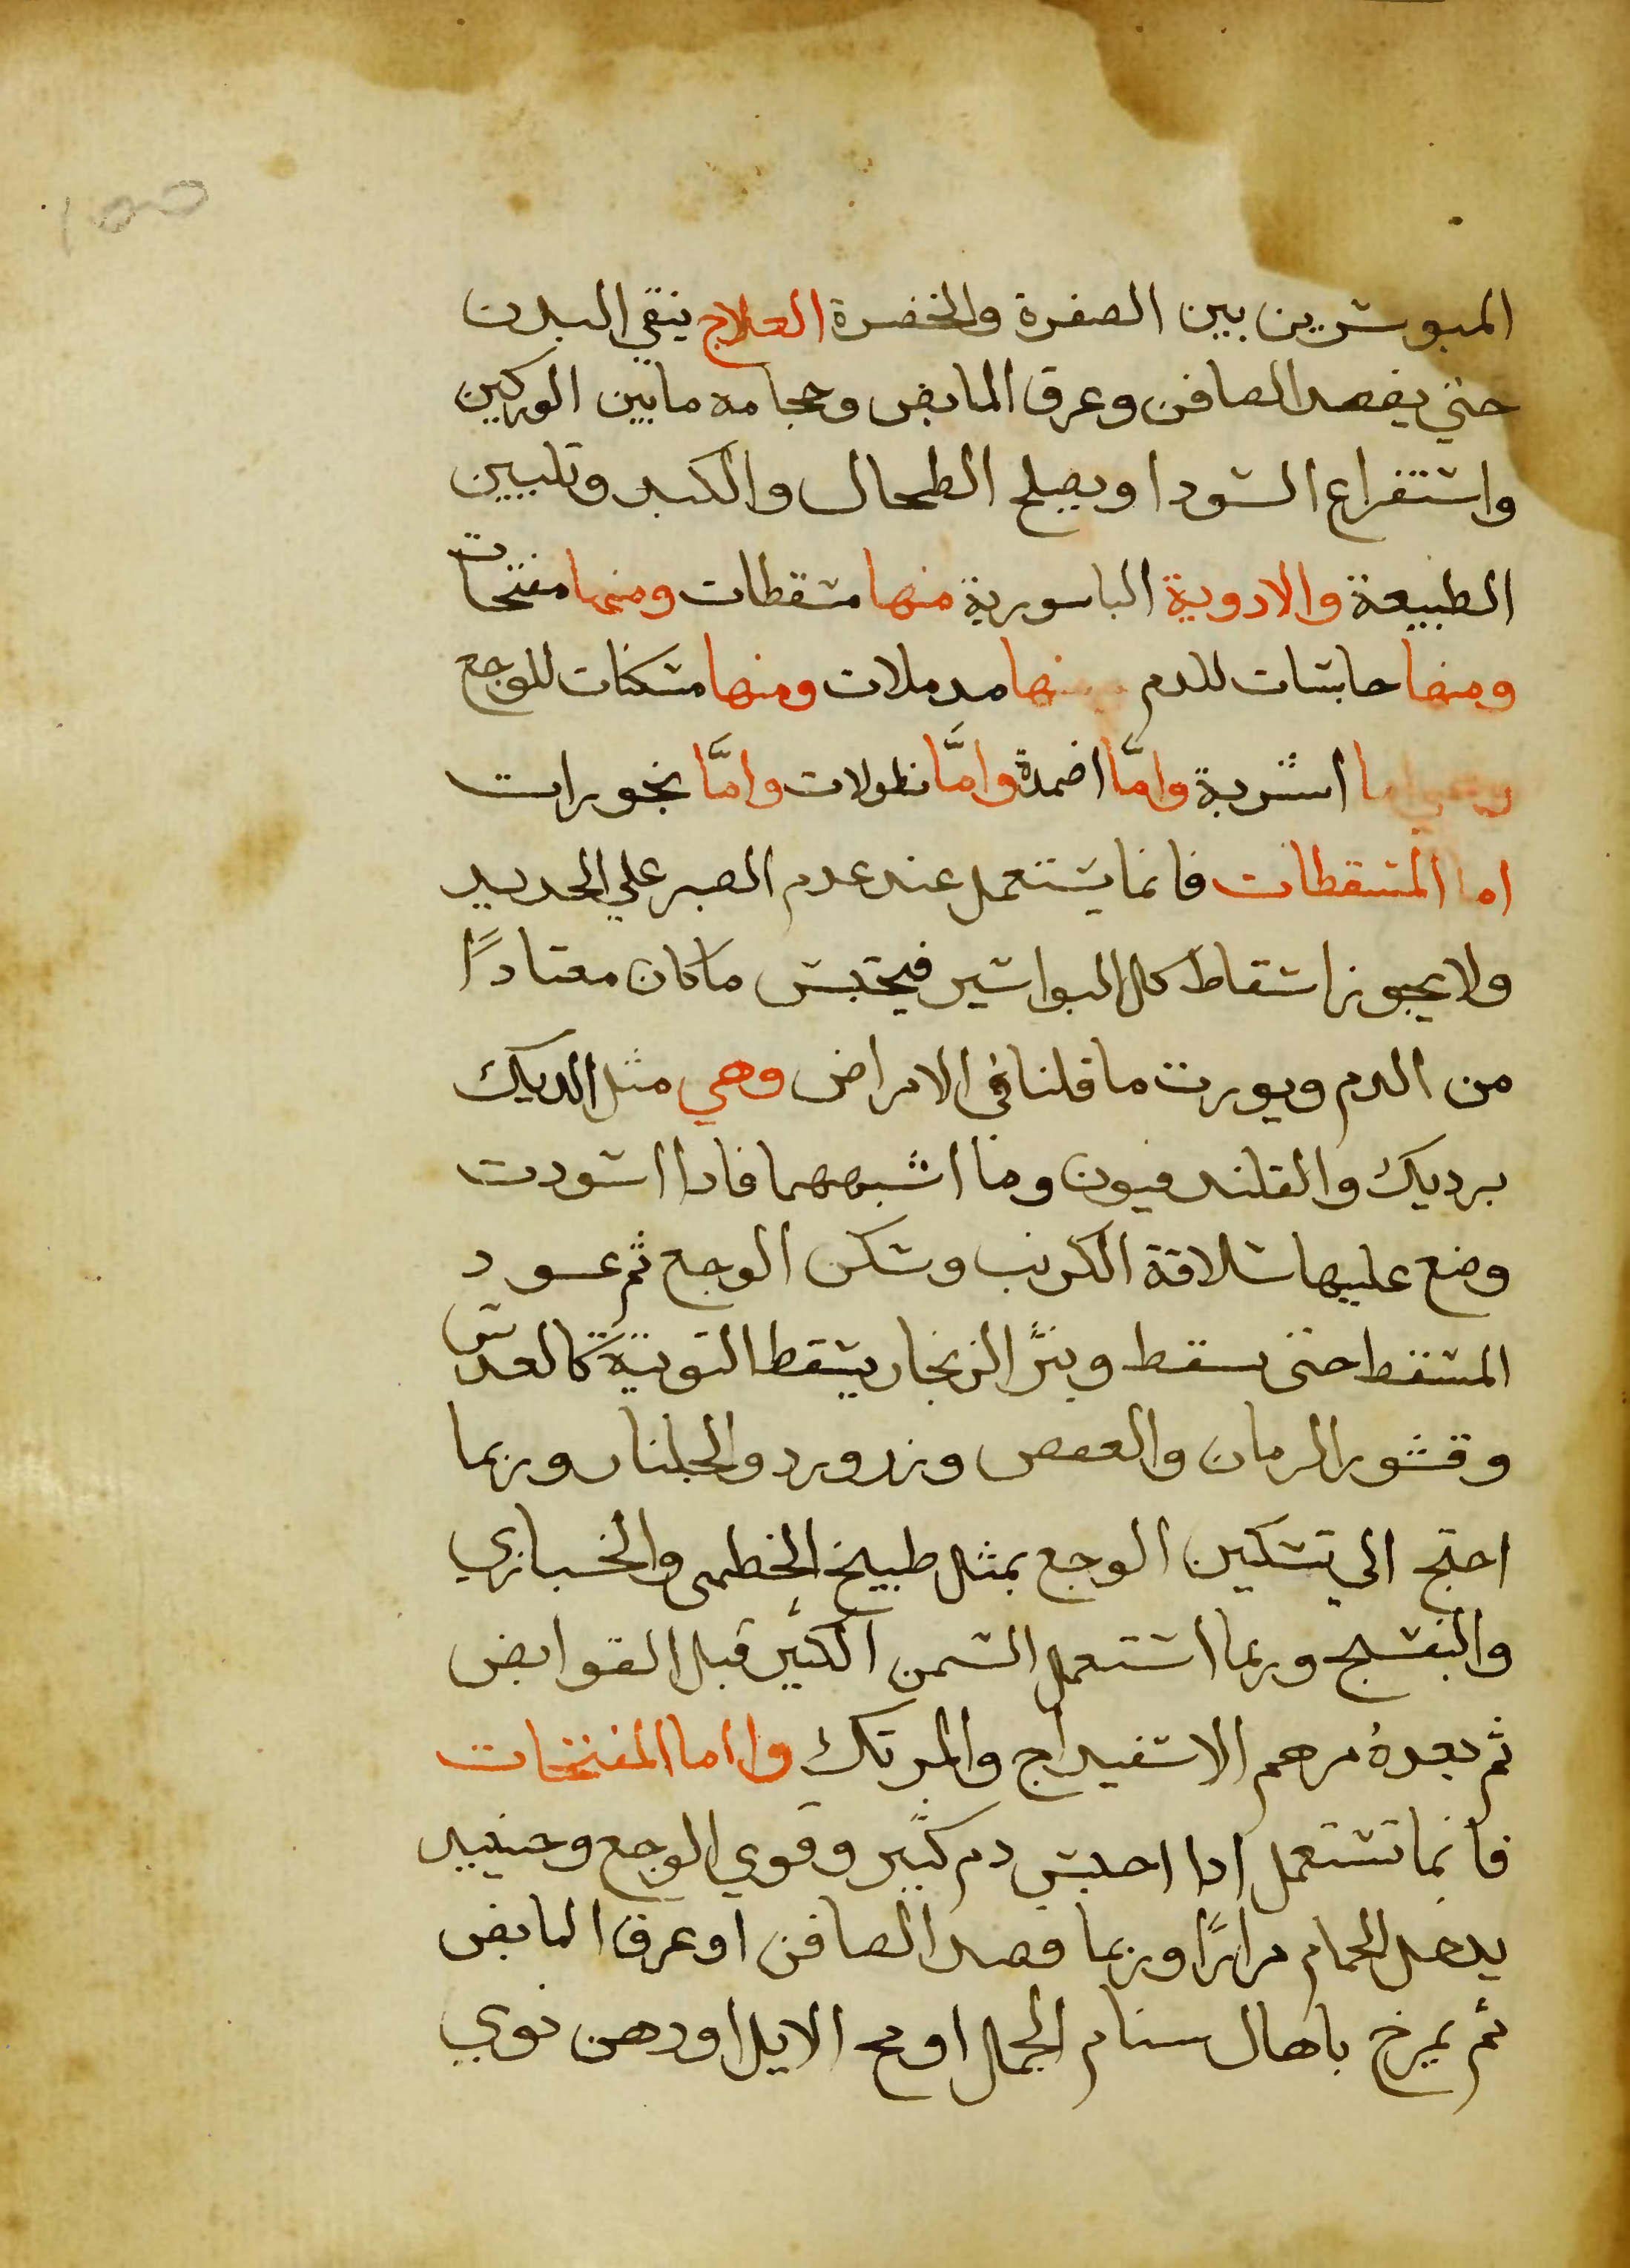 ١٥٥
المبوسرين بين الصفرة والخضرة العلاج ينقي البدن
حتي يفصد الصافن وعرق المابض وحجامه مابين الوركين
واستفراغ السودا ويصلح الطحال والكبد وتليين
الطبيعة والادوية الباسورية منها مسقطات ومنها مفتحات
ومنها حابسات للدم ومنها مدملات ومنها مسكنات للوجع
وهي اما اشربة وامَّا اضمدة وامَّا نطولات وامَّا بخورات
اما المسقطات فانما يستعمل عند عدم الصبر علي الحديد
ولا يجوز اسقاط كل البواسير فيحتبس ما كان معتادًا
من الدم ويورث ما قلنا في الامراض وهي مثل الديك
برديك والقلندفيون وما اشبههما فاذا اسودت
وضع عليها سلاقة الكرنب وسكن الوجع ثم عود
المسقط حتى سقط وبثر الزنجار يسقط التوتية كالعدس
وقشور الرمان والعفص وزرورد والجلنار وربما
احتج الي تسكين الوجع بمثل طبيخ الخطمى والخبازي
والبنفسج وربما استعمل السمن الكثير قبل القوابض
ثم بعدهُ مرهم الاسفيداج والمرتك واما المفتحات
فانما تستعمل اذا احتبس دم كثير وقوي الوجع وحينيد
يدخل الحمام مرارًا وربما فصد الصافن او عرق المابض
ثم يمرخ باهال سنام الجمل او مخ الايل او دهن نوي